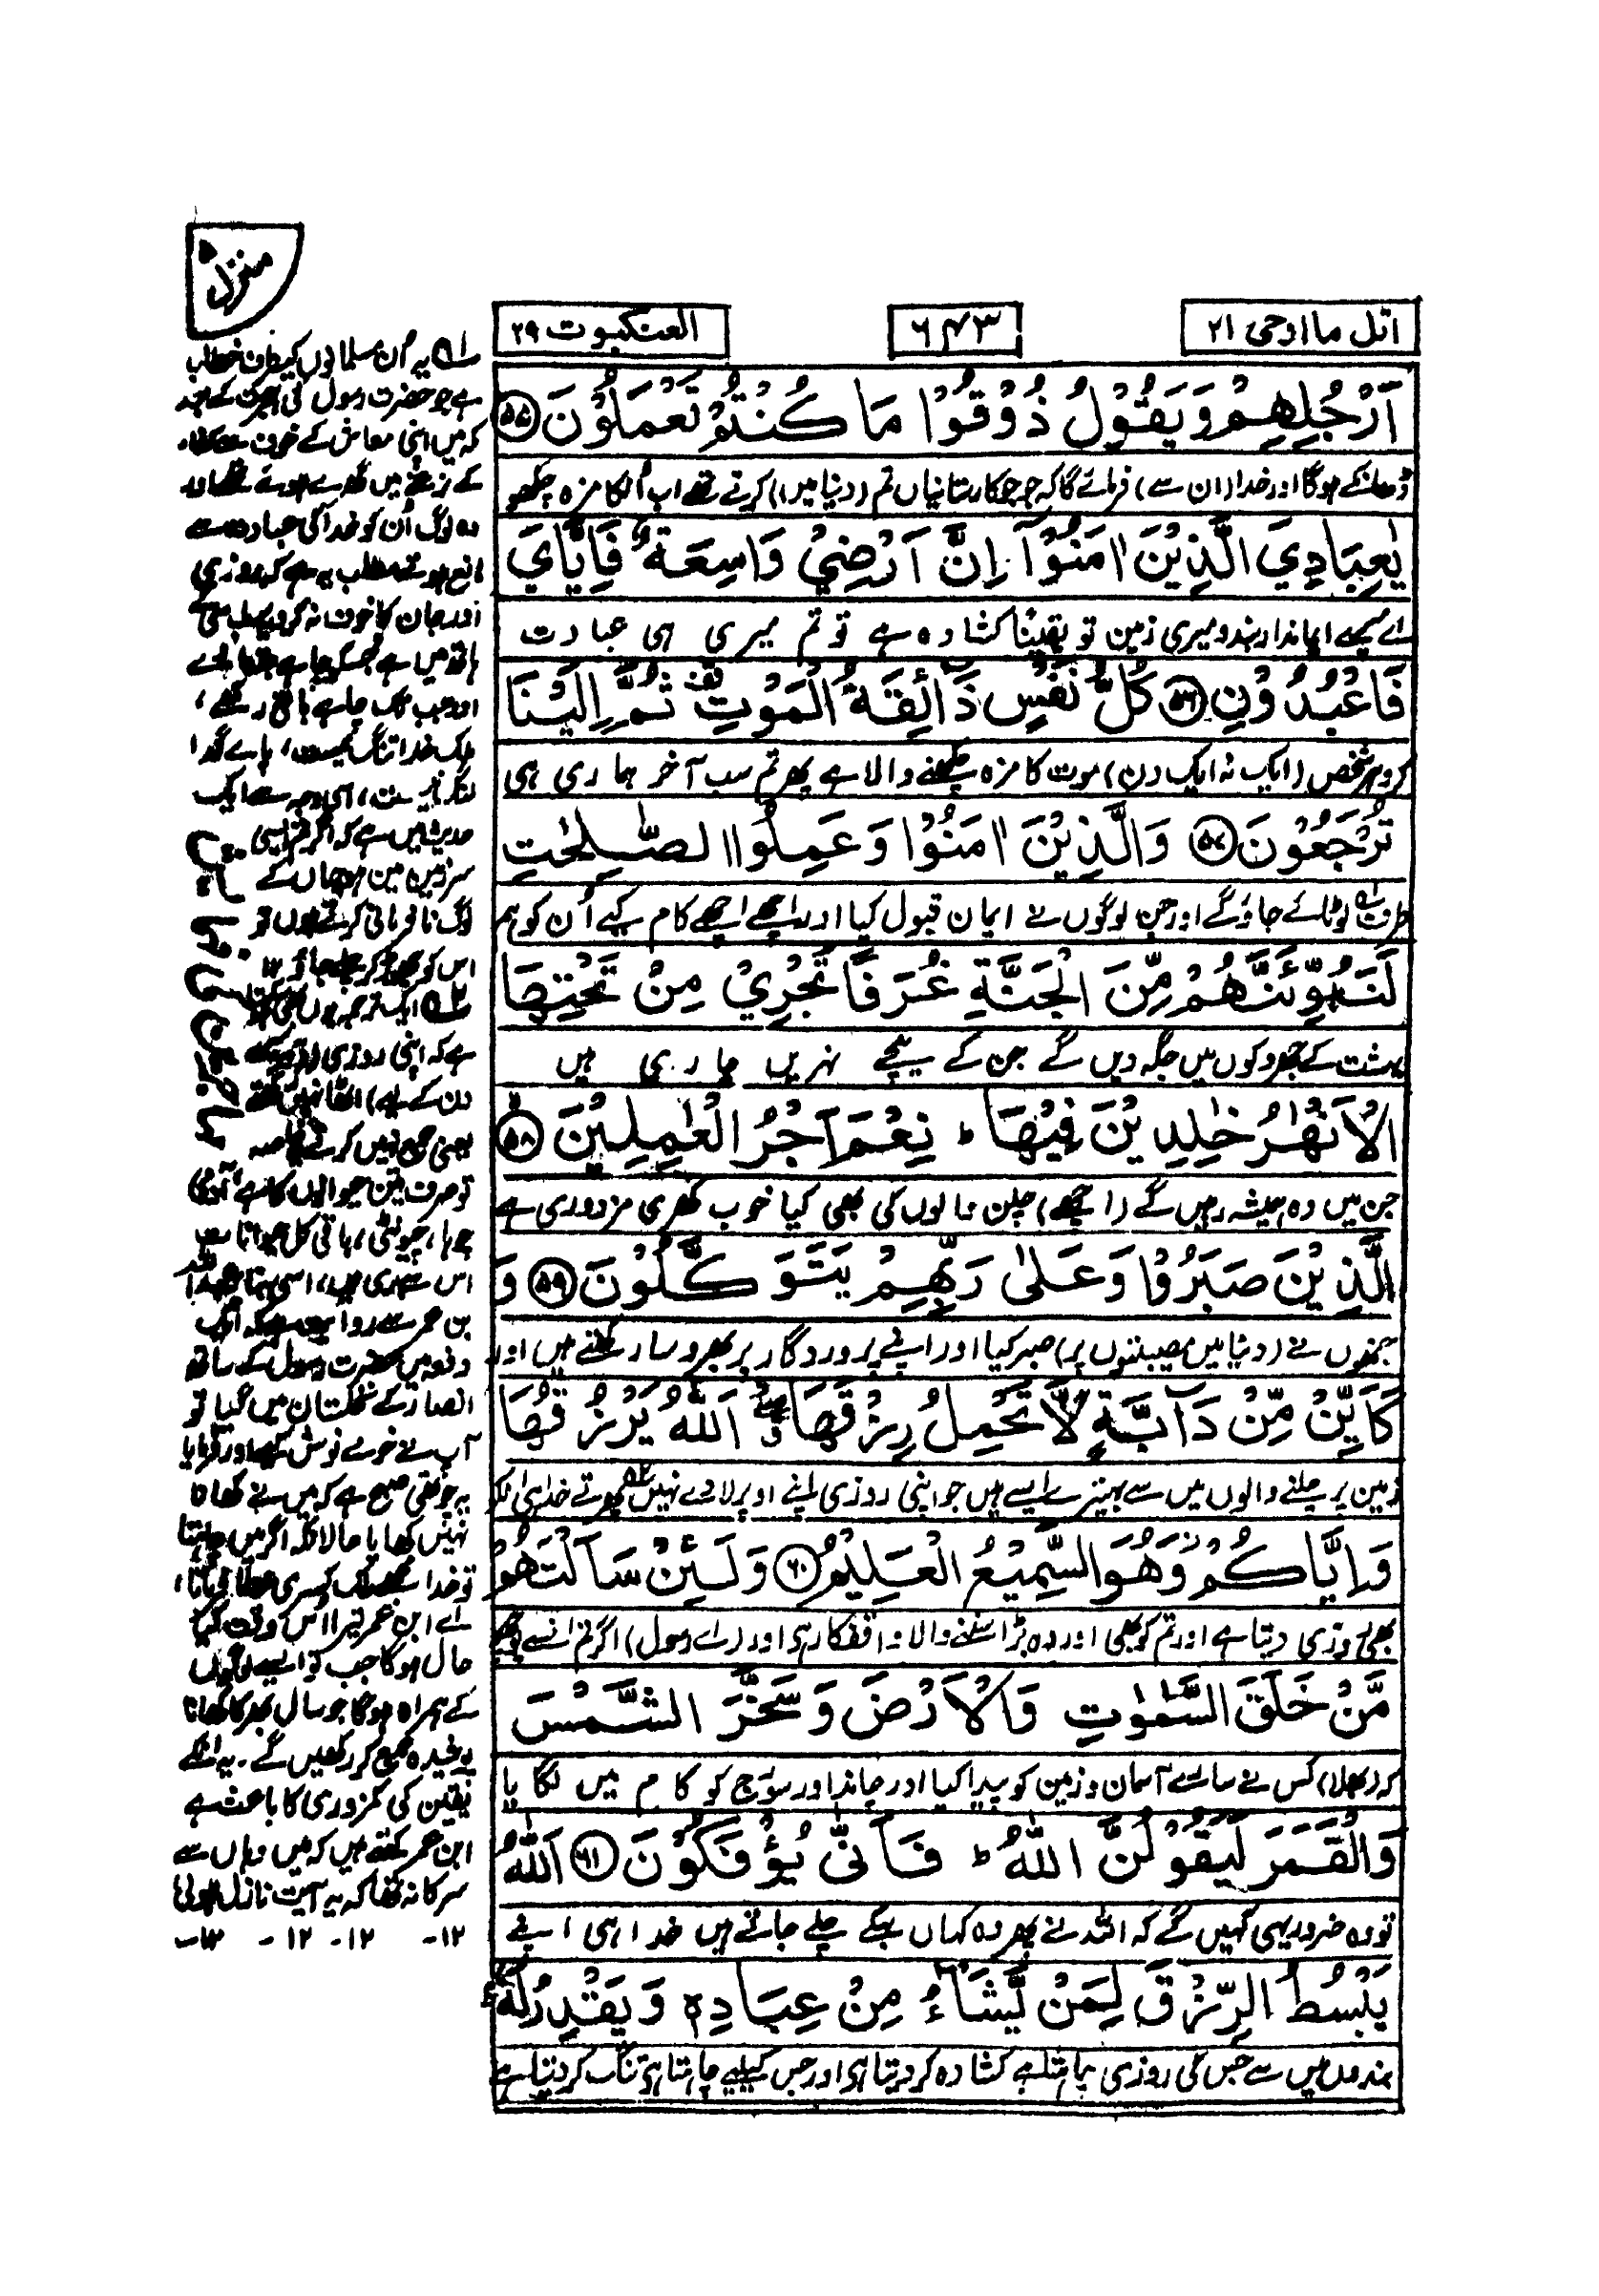 منزل ۵
اتل ما اوحی ۲۱
۶۴۳
العنکبوت ۲۹
اَرْجُلِهِمْ وَيَقُوْلُ ذُوْقُوْا مَا كُنْتُمْ تَعْمَلُوْنَ ﴿۵۵﴾
ڈھانکے ہوگا اور خدا (ان سے) فرمائے گا کہ جو جو کارستانیاں تم (دنیا میں) کرتے تھے اب اُنکا مزہ چکھو
يٰعِبَادِيَ الَّذِيْنَ اٰمَنُوْۤا اِنَّ اَرْضِيْ وَاسِعَةٌ فَاِيَّايَ
اے میرے ایماندار بندو میری زمین تو یقینًا کشادہ ہے تو تم میری ہی عبادت
فَاعْبُدُوْنِ ﴿۵۶﴾ كُلُّ نَفْسٍ ذَآئِقَةُ الْمَوْتِ ثُمَّ اِلَيْنَا
کرو ہر شخص (ایک نہ ایک دن) موت کا مزہ چکھنے والا ہے پھر تم سب آخر ہماری ہی
تُرْجَعُوْنَ ﴿۵۷﴾ وَالَّذِيْنَ اٰمَنُوْا وَعَمِلُوا الصّٰلِحٰتِ
طرف لوٹائے جاؤ گے اور جن لوگوں نے ایمان قبول کیا اور اچھے اچھے کام کیے اُن کو ہم
لَنُبَوِّئَنَّهُمْ مِّنَ الْجَنَّةِ غُرَفًا تَجْرِيْ مِنْ تَحْتِهَا
بہشت کے جھروکوں میں جگہ دیں گے جن کے نیچے نہریں جاری ہیں
الْاَنْهٰرُ خٰلِدِيْنَ فِيْهَا ؕ نِعْمَ اَجْرُ الْعٰمِلِيْنَ ﴿۵۸﴾
جن میں وہ ہمیشہ رہیں گے (اچھے) چلن والوں کی بھی کیا خوب کھری مزدوری ہے
الَّذِيْنَ صَبَرُوْا وَعَلٰى رَبِّهِمْ يَتَوَكَّلُوْنَ ﴿۵۹﴾ وَ
جنھوں نے (دنیا میں مصیبتوں پر) صبر کیا اور اپنے پروردگار پر بھروسا رکھتے ہیں اور
كَاَيِّنْ مِّنْ دَآبَّةٍ لَّا تَحْمِلُ رِزْقَهَا اَللّٰهُ يَرْزُقُهَا
زمین پر چلنے والوں میں سے بہتیرے ایسے ہیں جو اپنی روزی اپنے اوپر لادے نہیں پھرتے خدا ہی انکو
وَاِيَّاكُمْ وَهُوَ السَّمِيْعُ الْعَلِيْمُ ﴿۶۰﴾ وَلَئِنْ سَاَلْتَهُمْ
بھی روزی دیتا ہے اور تم کو بھی اور وہ بڑا سننے والا واقفکار ہی اور (اے رسول) اگر تم ان سے پوچھو
مَّنْ خَلَقَ السَّمٰوٰتِ وَالْاَرْضَ وَسَخَّرَ الشَّمْسَ
کہ (بھلا) کس نے سارے آسمان و زمین کو پیدا کیا اور چاند اور سورج کو کام میں لگایا
وَالْقَمَرَ لَيَقُوْلُنَّ اللّٰهُ ؕ فَاَنّٰى يُؤْفَكُوْنَ ﴿۶۱﴾ اَللّٰهُ
تو وہ ضرور یہی کہیں گے کہ اللہ نے پھر وہ کہاں بہکے چلے جاتے ہیں خدا ہی اپنے
يَبْسُطُ الرِّزْقَ لِمَنْ يَّشَآءُ مِنْ عِبَادِهٖ وَيَقْدِرُ لَهٗ
بندوں میں سے جس کی روزی چاہتا ہے کشادہ کر دیتا ہی اور جس کیلیے چاہتا ہی تنگ کر دیتا ہے
؎۱ یہ اُن مسلمانوں کیطرف خطاب
ہے جو حضرت رسول کی ہجرت کے بعد
مکہ میں اپنی معاش کے خوف سے کفار
کے نرغے میں گھرے ہوئے تھے اور
وہ لوگ اُن کو خدا کی عبادت سے
مانع ہوتے مطلب یہ ہے کہ روزی
اور جان کا خوف نہ کرو
ہاتھ میں ہے جسکو چاہے
اور جب تک چاہے باقی رکھے،
ملک خدا تنگ نیست، پائے گدا
لنگ نیست، اسی وجہ سے ایک
حدیث میں ہے کہ اگر تم ایسی
سرزمین میں ہو جہاں کے
لوگ نافرمانی کرتے ہوں تو
اس کو چھوڑ کر چلے جاؤ ۱۲
؎۲ ایک ترجمہ یوں بھی
ہے کہ اپنی روزی
دن کے لیے) اٹھا نہیں رکھتے
یعنی جمع نہیں کرتے
تو صرف تین حیوانوں کا ہے آدمی
چوہا، چیونٹی، باقی کل حیوانات
اس سے بری ہیں، اسی بنا
بن عمر سے روایت ہے کہ ایک
دفعہ میں حضرت رسول کے ساتھ
انصار کے نخلستان میں گیا تو
آپ نے خرمے نوش کیے اور فرمایا
یہ چوتھی صبح ہے کہ میں نے کھانا
نہیں کھایا حالانکہ اگر میں چاہتا
تو خدا مجھے ملک کسریٰ عطا فرماتا،
اے ابن عمر تیرا اُس وقت کیا
حال ہوگا جب تو ایسے لوگوں
کے ہمراہ ہوگا جو سال بھر کا کھانا
پوشیدہ جمع کر رکھیں گے۔ یہ انکے
یقین کی کمزوری کا باعث ہے
ابن عمر کہتے ہیں کہ میں وہاں سے
سرکا نہ تھا کہ یہ آیت نازل ہوئی
۱۲- ۱۲- ۱۲- ۱۲-